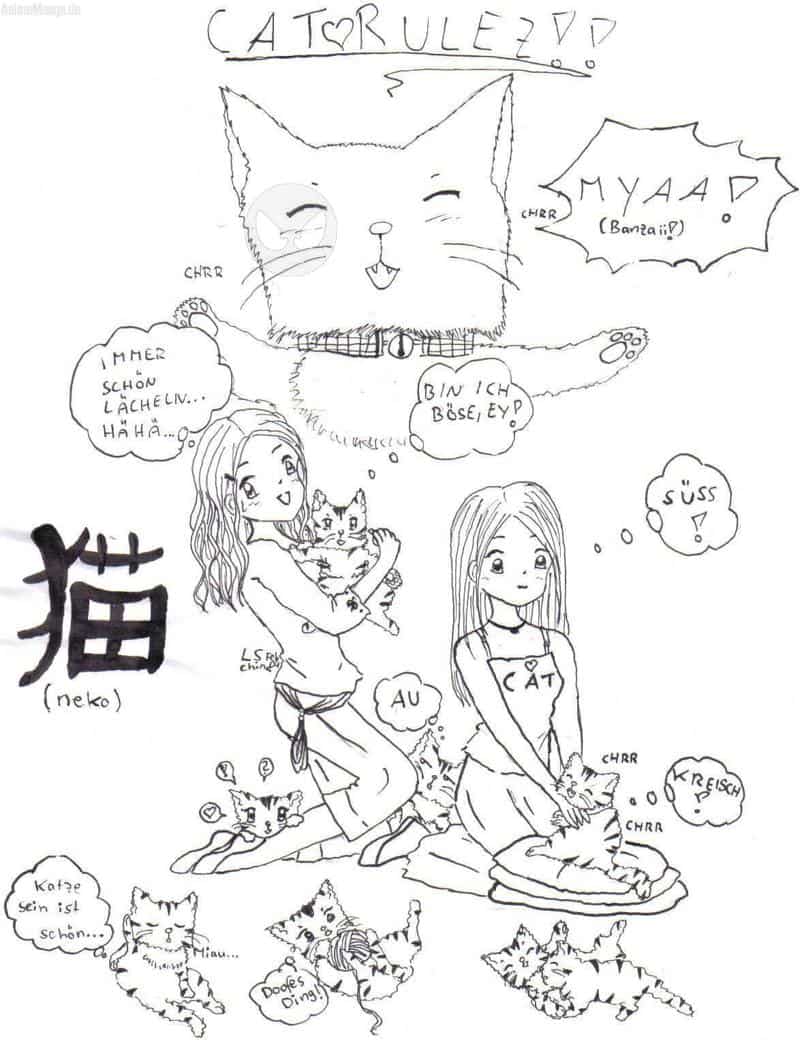 AnimeManga.de
CAT♡RULEZ!!
MYAA!
(Banzaii!)
CHRR
CHRR
IMMER
SCHÖN
LÄCHELN...
HÄHÄ...
BIN ICH
BÖSE, EY!
SÜSS
!
猫
(neko)
AU
C♡AT
! ?
♡
CHRR
KREISCH
!
CHRR
Katze
sein ist
schön...
Miau...
Doofes
Ding!